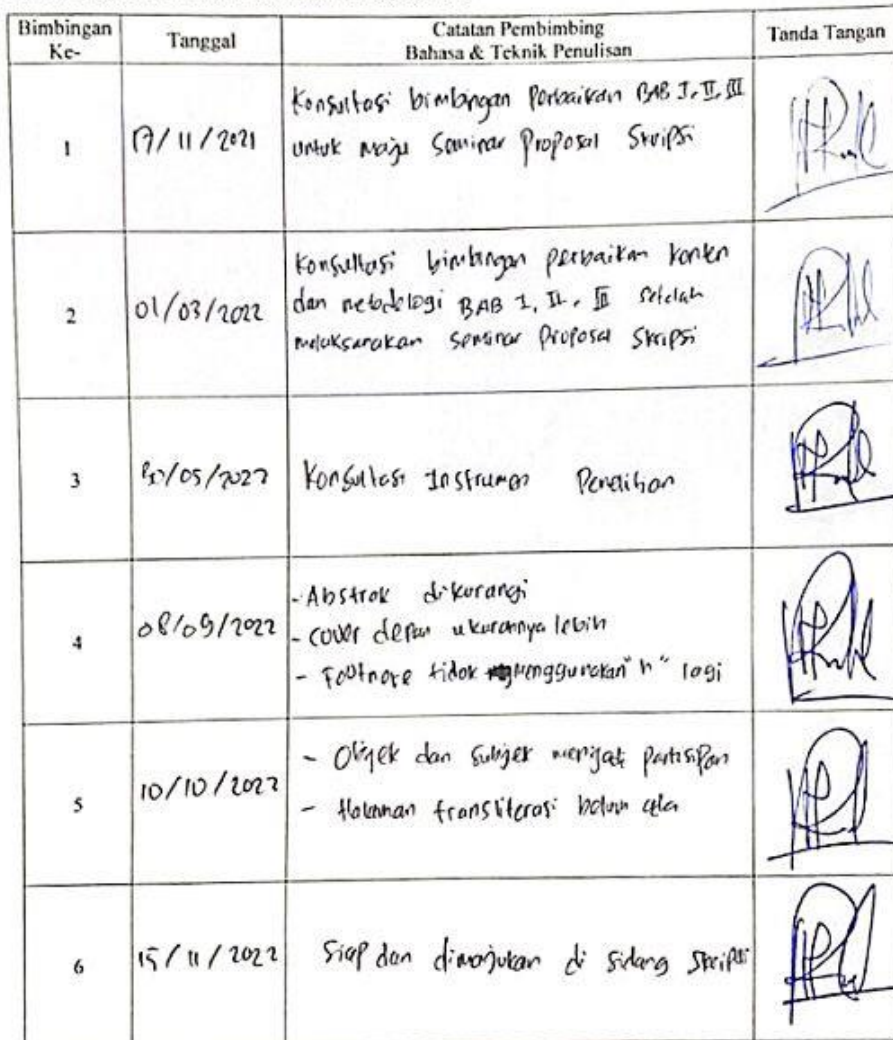 Bimbingan Ke-
Tanggal
Catatan Pembimbing
Bahasa & Teknik Penulisan
Tanda Tangan
1
17/11/2021
Konsultasi bimbingan Perbaikan BAB I, II, III
untuk maju Seminar Proposal Skripsi
2
01/03/2022
Konsultasi bimbingan perbaikan konten
dan metodologi BAB I, II, III setelah
melaksanakan seminar Proposal Skripsi
3
30/05/2022
Konsultasi Instrumen Penelitian
4
08/09/2022
- Abstrak dikurangi
- cover depan ukurannya lebih
- Footnote tidak menggunakan "h" lagi
5
10/10/2022
- Objek dan Subjek menjadi partisipan
- Halaman transliterasi belum ada
6
15/11/2022
Siap dan dimajukan di sidang Skripsi